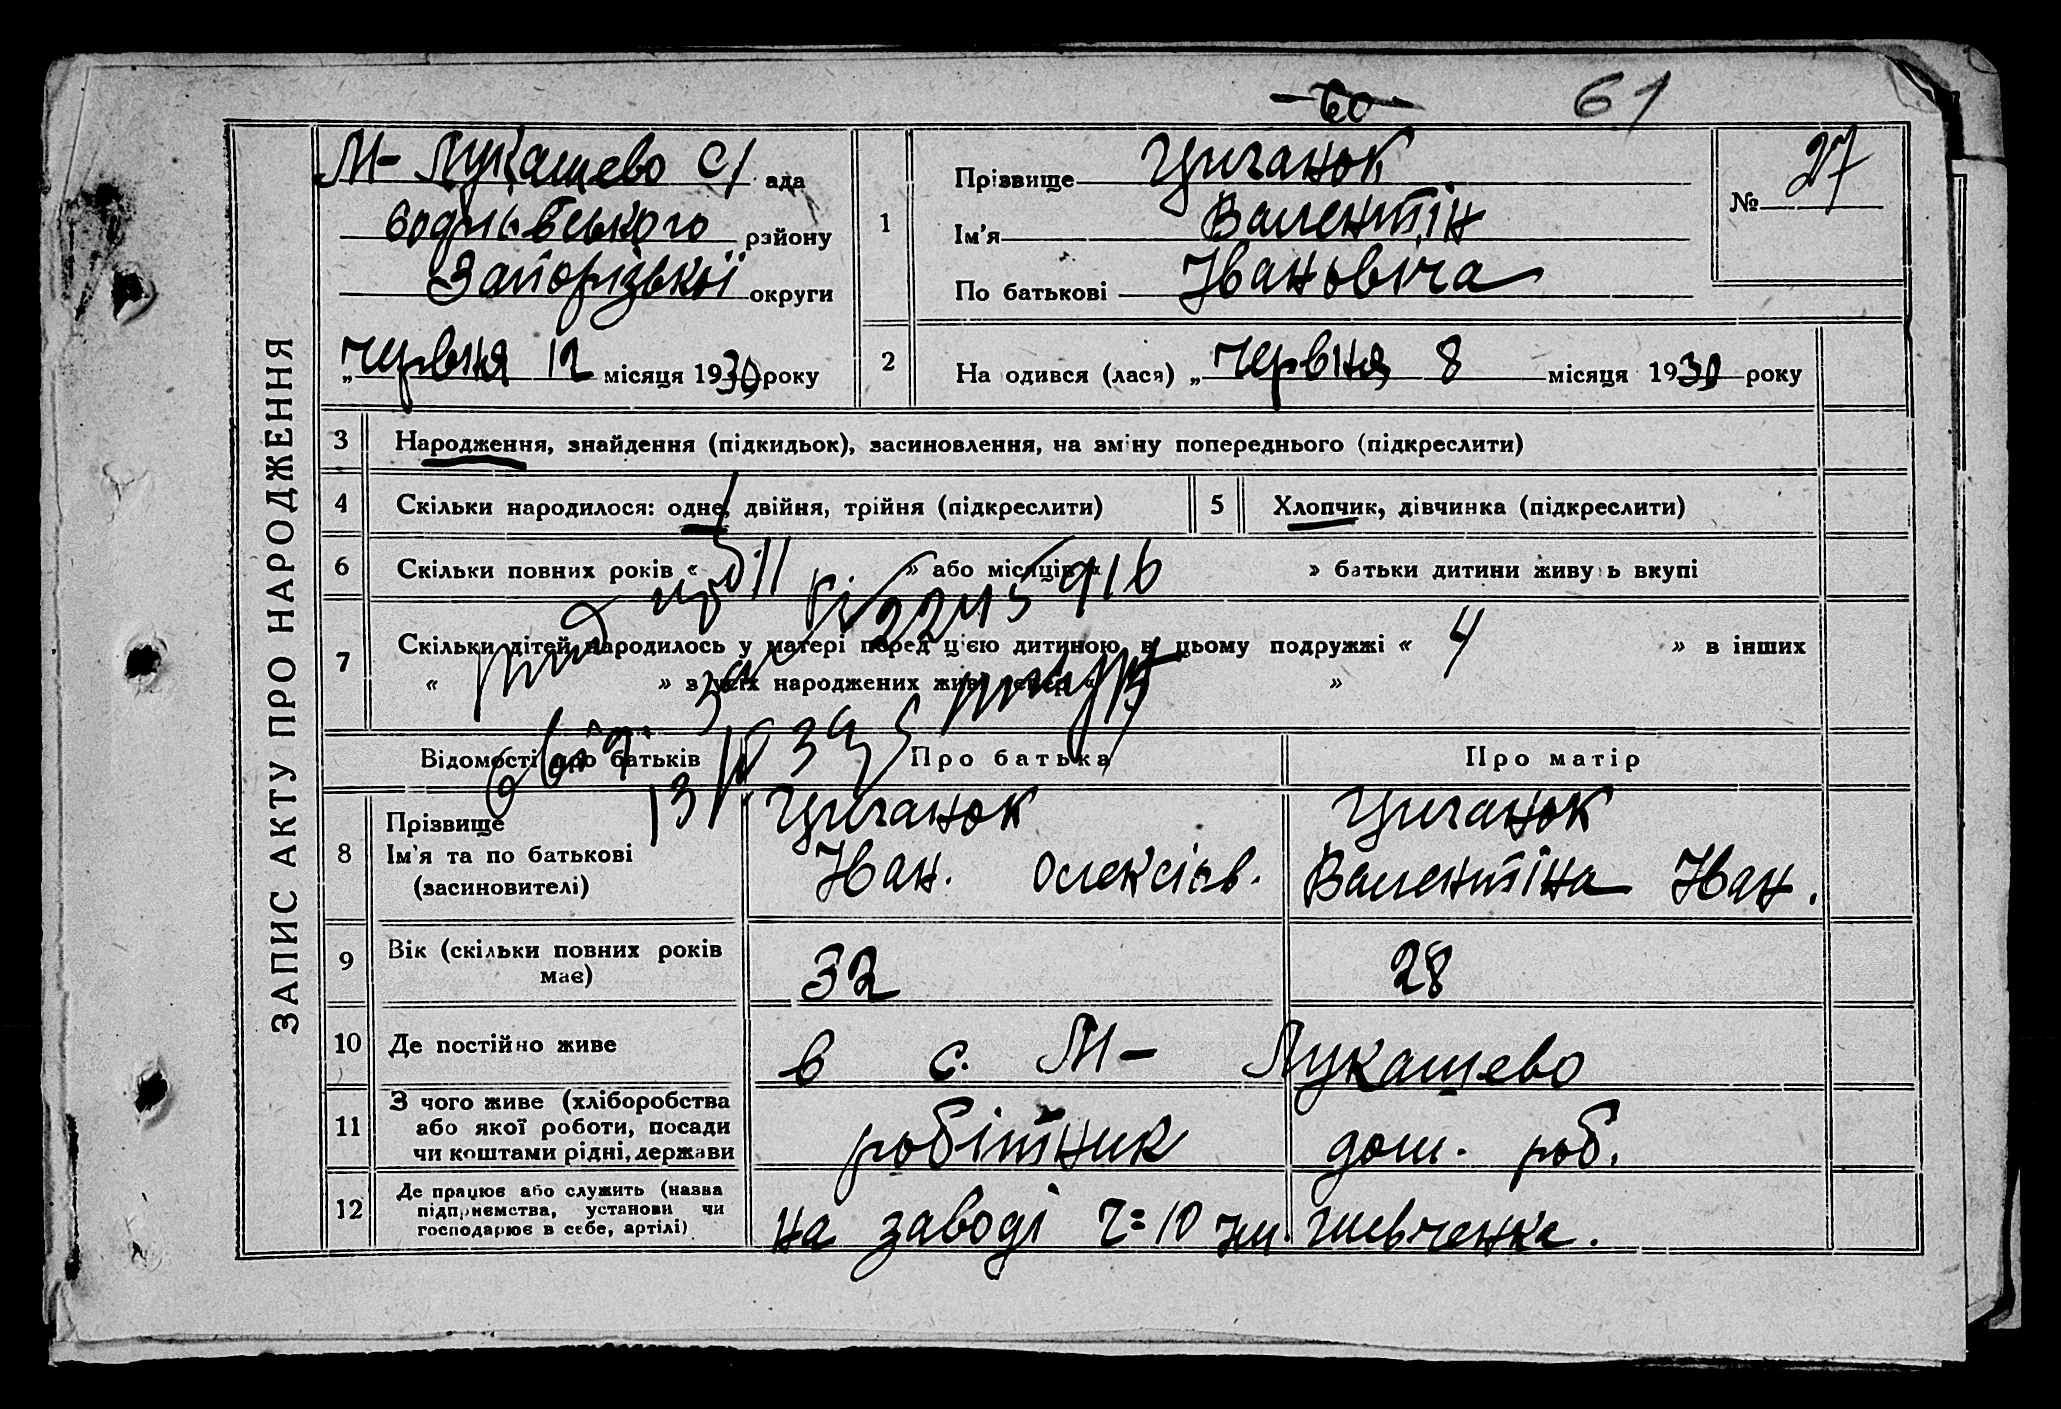 60 61
ЗАПИС АКТУ ПРО НАРОДЖЕННЯ
М- Лукашево С/ ада
району
Запорізької округи
„Червня 12 місяця 1930 року
1
Прізвище Циганок
Ім'я Валентін
По батькові Івановіча
№ 27
2
На одився (лася) „Червня 8 місяця 1930 року
3 Народження, знайдення (підкидьок), засиновлення, на зміну попереднього (підкреслити)
4 Скільки народилося: одне, двійня, трійня (підкреслити)
5 Хлопчик, дівчинка (підкреслити)
6 Скільки повних років « 11 » або місяців « » батьки дитини живу ь вкупі
7 Скільки дітей народилось у матері перед цією дитиною в цьому подружжі « 4 » в інших
« » з усіх народжених живі тепер « »
Відомості про батьків Про батька Про матір
8 Прізвище
Ім'я та по батькові
(засиновителі)
Циганок
Іван. Олексієв.
Циганок
Валентіна Іван.
9 Вік (скільки повних років
має)
32 28
10 Де постійно живе в с. М- Лукашево
11 З чого живе (хліборобства
або якої роботи, посади
чи коштами рідні, держави
робітник дом. роб.
12 Де працює або служить (назва
підприємства, установи чи
господарює в себе, артілі)
на заводі Ч=10 ім. Шевченка.